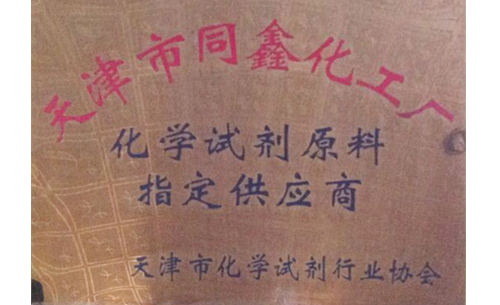 天津市同鑫化工厂
化学试剂原料
指定供应商
天津市化学试剂行业协会